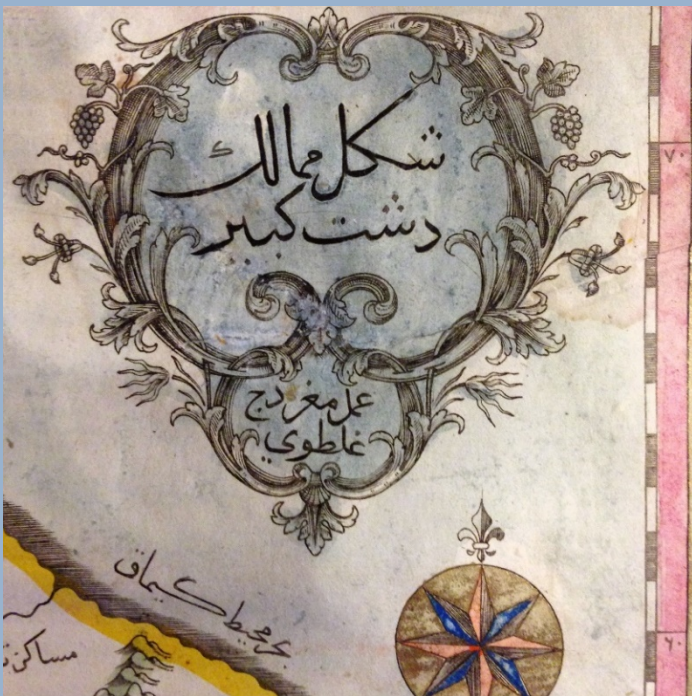 شكل ممالك
دشت كبير
عمل مغردج
غلطوي
٧٠
بحر محيط كيماق
مساكن
٦٠